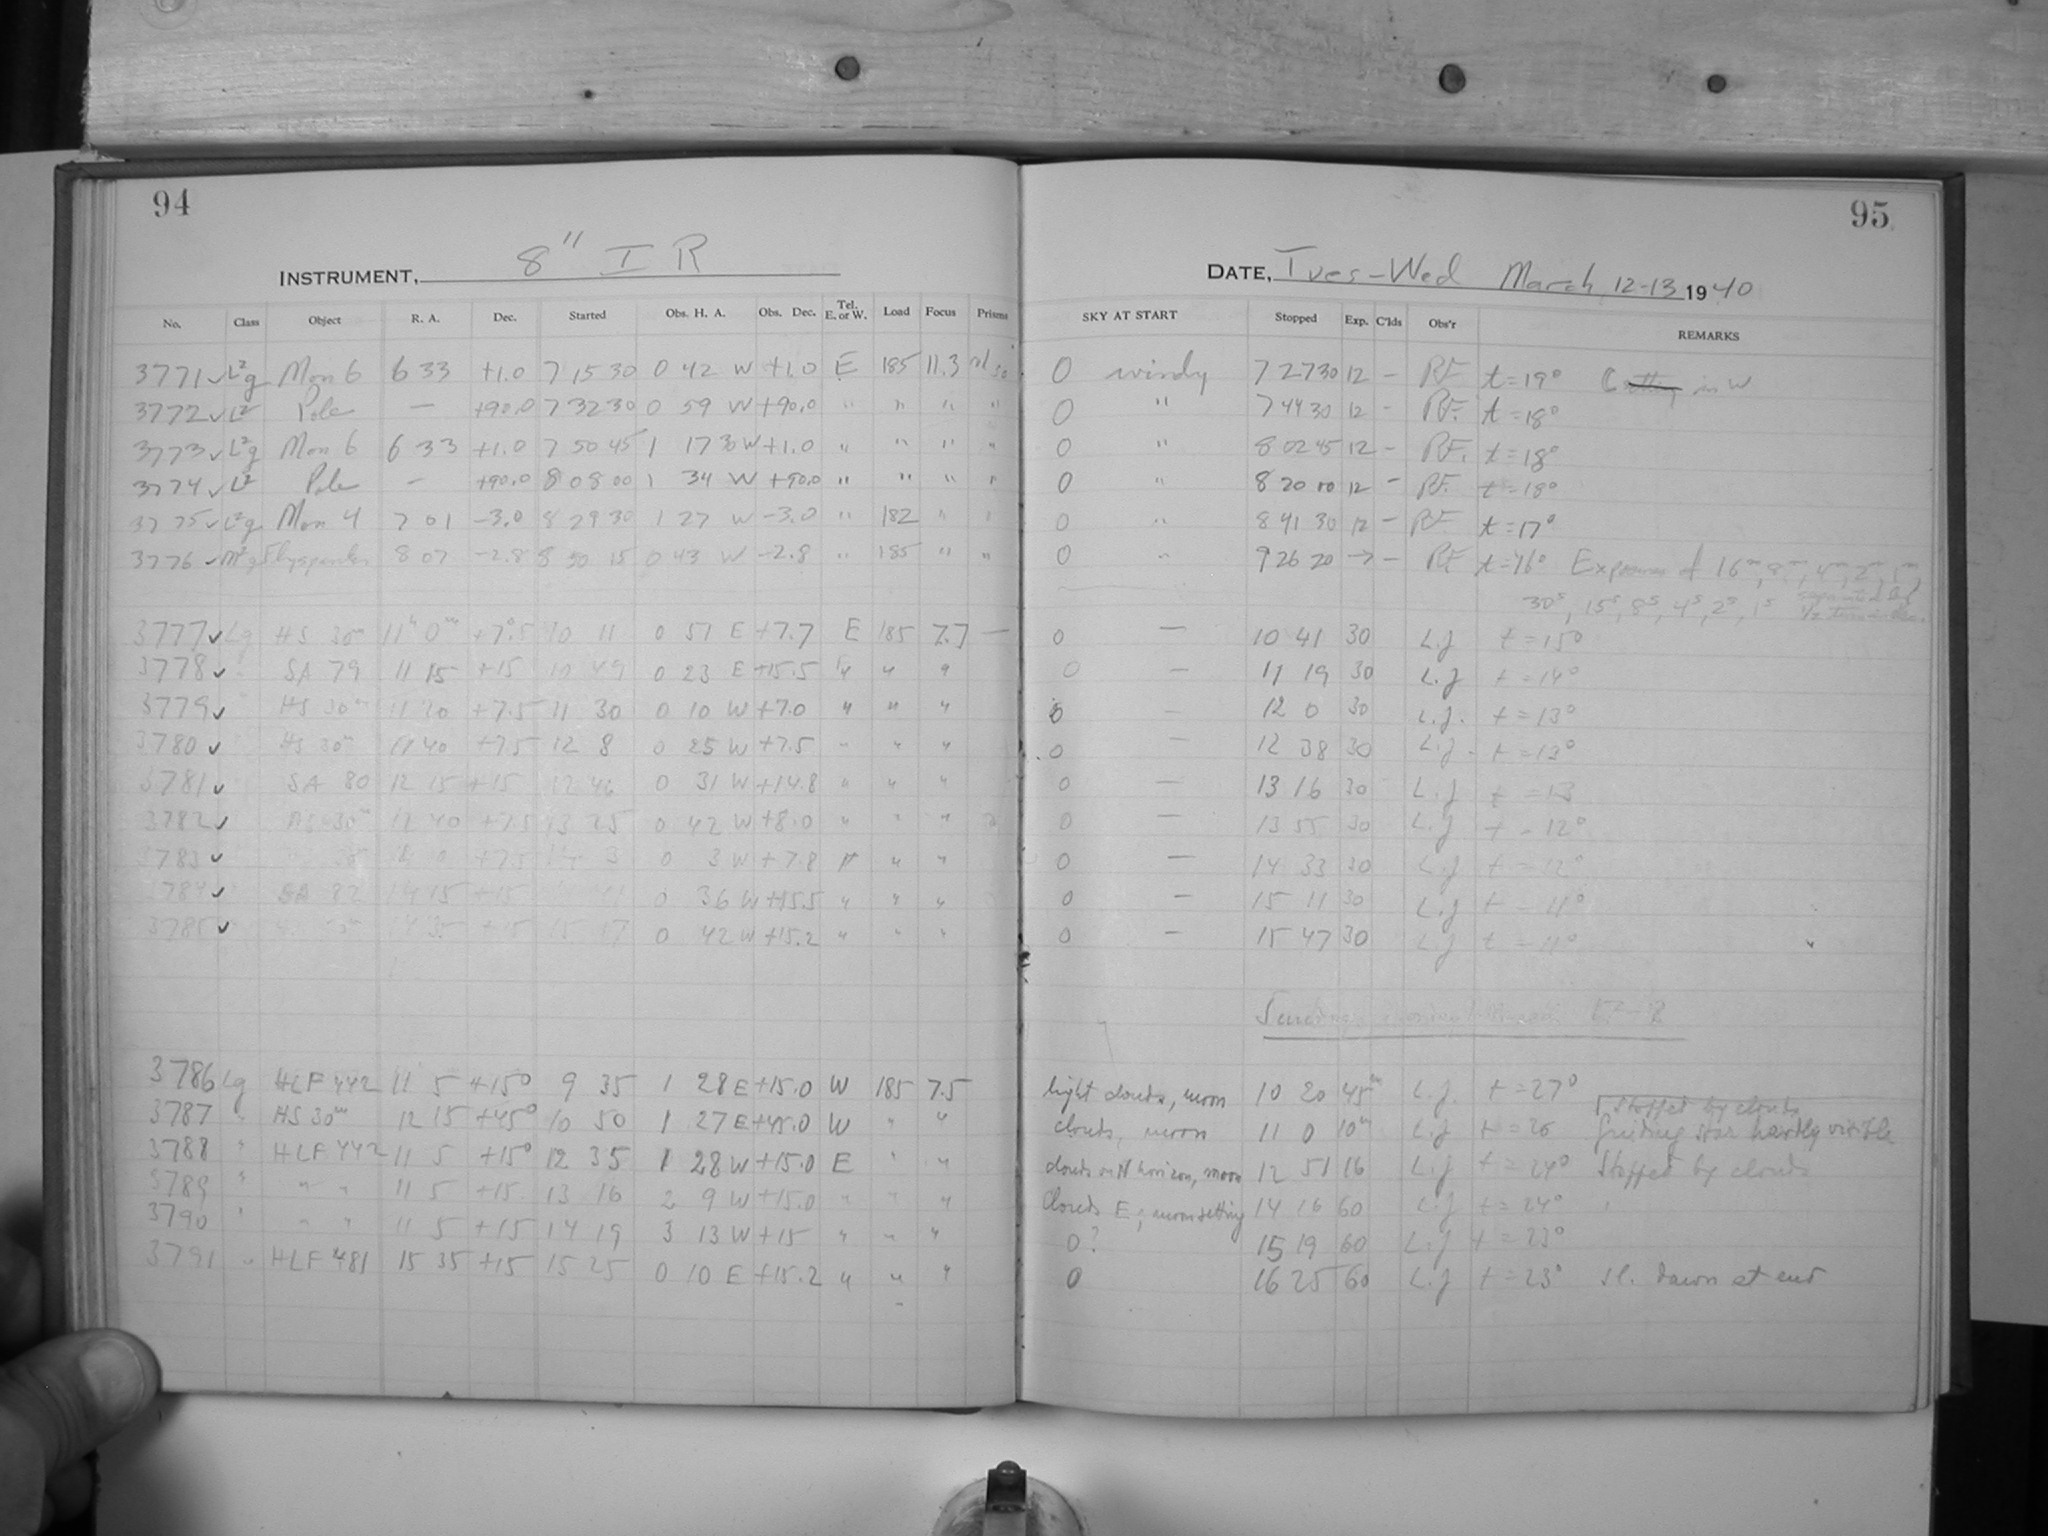 94
INSTRUMENT, 8" I R
No. Class Object R. A. Dec. Started Obs. H. A. Obs. Dec. Tel. E. or W. Load Focus Prisms
3771 ✓ L²g Mon 6 6 33 +1.0 7 15 30 0 42 W +1.0 E 185 11.3
3772 ✓ L² Pole — +90.0 7 32 30 0 59 W +90.0 " " " "
3773 ✓ L²g Mon 6 6 33 +1.0 7 50 45 1 17 30 W +1.0 " " " "
3774 ✓ L² Pole - +90.0 8 08 00 1 34 W +90.0 " " " "
3775 ✓ L²g Mon 4 7 01 -3.0 8 29 30 1 27 W -3.0 " 182 " "
3776 ✓ 8 07 -2.8 8 50 15 0 43 W -2.8 " 185 " "
3777 ✓ Lg HS 30ᵐ 11ʰ 0ᵐ +7.5 10 11 0 51 E +7.7 E 185 7.7 —
3778 ✓ " SA 79 11 15 +15 10 49 0 23 E +15.5 " " "
3779 ✓ " HS 30ᵐ 11 20 +7.5 11 30 0 10 W +7.0 " " "
3780 ✓ HS 30ᵐ 11 40 +7.5 12 8 0 25 W +7.5 " " "
3781 ✓ SA 80 12 15 +15 12 46 0 31 W +14.8 " " "
3782 ✓ HS 30ᵐ 12 40 +7.5 13 25 0 42 W +8.0 " " "
3783 ✓ +7.5 14 3 0 3 W +7.8 " " "
3784 ✓ SA 82 14 15 +15 0 36 W +15.5 " " "
3785 ✓ +15 15 17 0 42 W +15.2 " " "
3786 Lg HLF 442 11 5 +15° 9 35 1 28 E +15.0 W 185 7.5
3787 " HS 30ᵐ 12 15 +45° 10 50 1 27 E +45.0 W " "
3788 " HLF 442 11 5 +15° 12 35 1 28 W +15.0 E " "
3789 " " " 11 5 +15 13 16 2 9 W +15.0 " " "
3790 " " " 11 5 +15 14 19 3 13 W +15 " " "
3791 " HLF 481 15 35 +15 15 25 0 10 E +15.2 " " "
95
DATE, Tues-Wed March 12-13 1940
SKY AT START Stopped Exp. C'lds Obs'r REMARKS
0 windy 7 27 30 12 - RF t = 19° in W
0 " 7 44 30 12 - RF. t = 18°
0 " 8 02 45 12 - RF. t = 18°
0 " 8 20 10 12 - RF. t = 18°
0 " 8 41 30 12 - RF t = 17°
0 " 9 26 20 → - RF t = 16° Exposures of 16ᵐ, 8ᵐ, 4ᵐ, 2ᵐ, 1ᵐ
30ˢ, 15ˢ, 8ˢ, 4ˢ, 2ˢ, 1ˢ separated by
0 — 10 41 30 L.J t = 15°
0 — 11 19 30 L.J t = 14°
0 — 12 0 30 L.J. t = 13°
0 — 12 38 30 L.J. t = 13°
0 — 13 16 30 L.J t = 13
0 — 13 55 30 L.J t = 12°
0 — 14 33 30 L.J t = 12°
0 — 15 11 30 L.J t = 11°
0 - 15 47 30 L.J t = 11°
light clouds, moon 10 20 45ᵐ L.J. t = 27°
clouds, moon 11 0 10ᵐ L.J t = 26 Stopped by clouds
Guiding star hardly visible
clouds on N horizon, moon 12 51 16 L.J t = 24° Stopped by clouds
Clouds E; moon setting 14 16 60 L.J t = 24°
0? 15 19 60 L.J t = 23°
0 16 25 60 L.J t = 23° sl. dawn at end